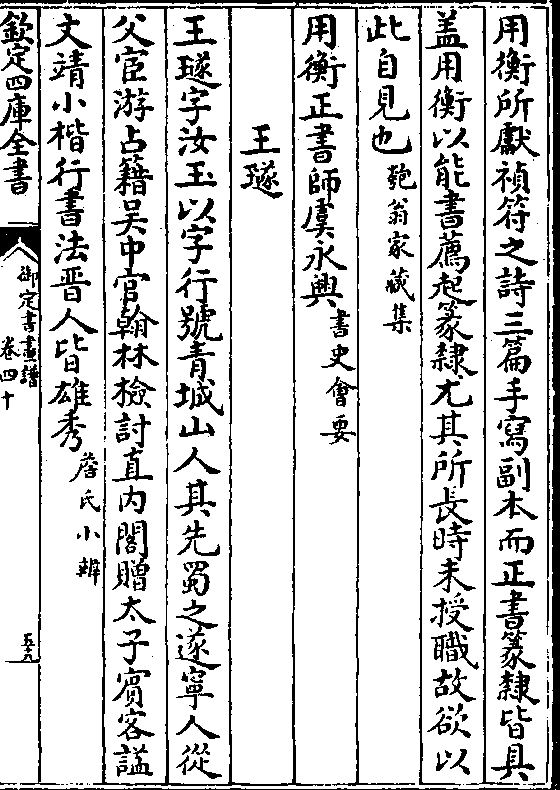 用衡所獻禎符之詩三篇手寫副本而正書篆隸皆具
盖用衡以能書薦起篆隸尤其所長時未授職故欲以
此自見也匏翁家藏集
用衡正書師虞永興書史會要
王璲
王璲字汝玉以字行號青城山人其先蜀之遂寧人從
父宦游占籍吴中官翰林檢討直内閣贈太子賓客諡
文靖小楷行書法晋人皆雄秀詹氏小辨
欽定四庫全書
御定書畫譜
卷四十